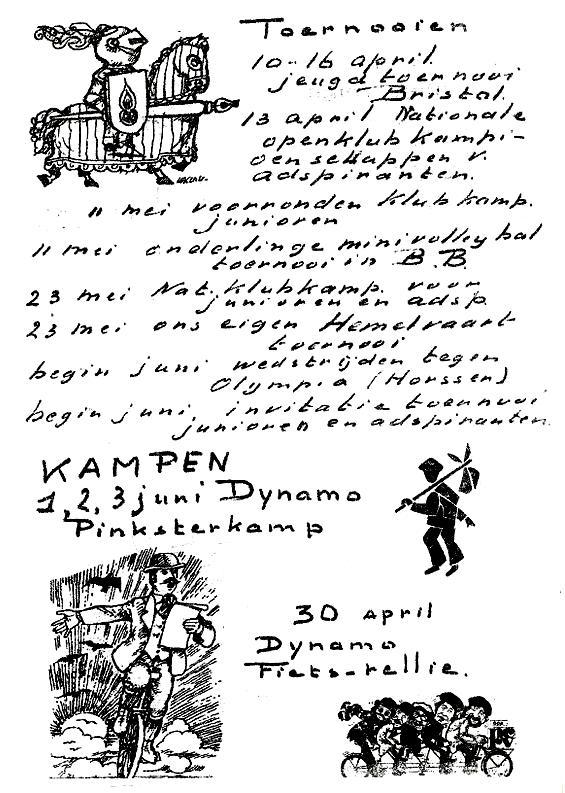 Toernooien
10-16 april.
jeugdtoernooi
Bristol.
13 april Nationale
openklubkampi-
oenschappen v.
adspiranten.
11 mei voorronden klubkamp.
junioren
11 mei onderlinge minivolleybal
toernooi in B.B.
23 mei Nat. klubkamp. voor
junioren en adsp.
23 mei ons eigen Hemelvaart-
toernooi
begin juni wedstrijden tegen
Olympia (Horssen)
begin juni, invitatie toernooi
junioren en adspiranten.
KAMPEN
1, 2, 3 juni Dynamo
Pinksterkamp
30 april
Dynamo
Fiets-rellie.